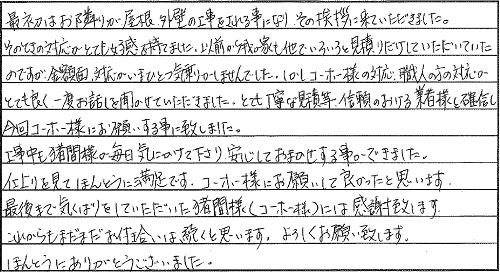 最初はお隣りが屋根、外壁の工事をされる事になり、その挨拶に来ていただきました。
そのときの対応がとても好感が持てました。以前から我が家も他でいろいろと見積りだけしていただいていた
のですが金額面、対応がいまひとつ気乗りがしませんでした。しかしコーホー様の対応、職人の方の対応が
とても良く一度お話しを聞かせていただきました。とても丁寧な見積等、信頼のおける業者様と確信し
今回コーホー様にお願いする事に致しました。
工事中も猪間様が毎日気にかけて下さり安心しておまかせする事ができました。
仕上りを見てほんとうに満足です。コーホー様にお願いして良かったと思います。
最後まで気くばりをしていただいた猪間様(コーホー様)には感謝致します。
これからもまだまだお付き合いは続くと思います。よろしくお願い致します。
ほんとうにありがとうございました。